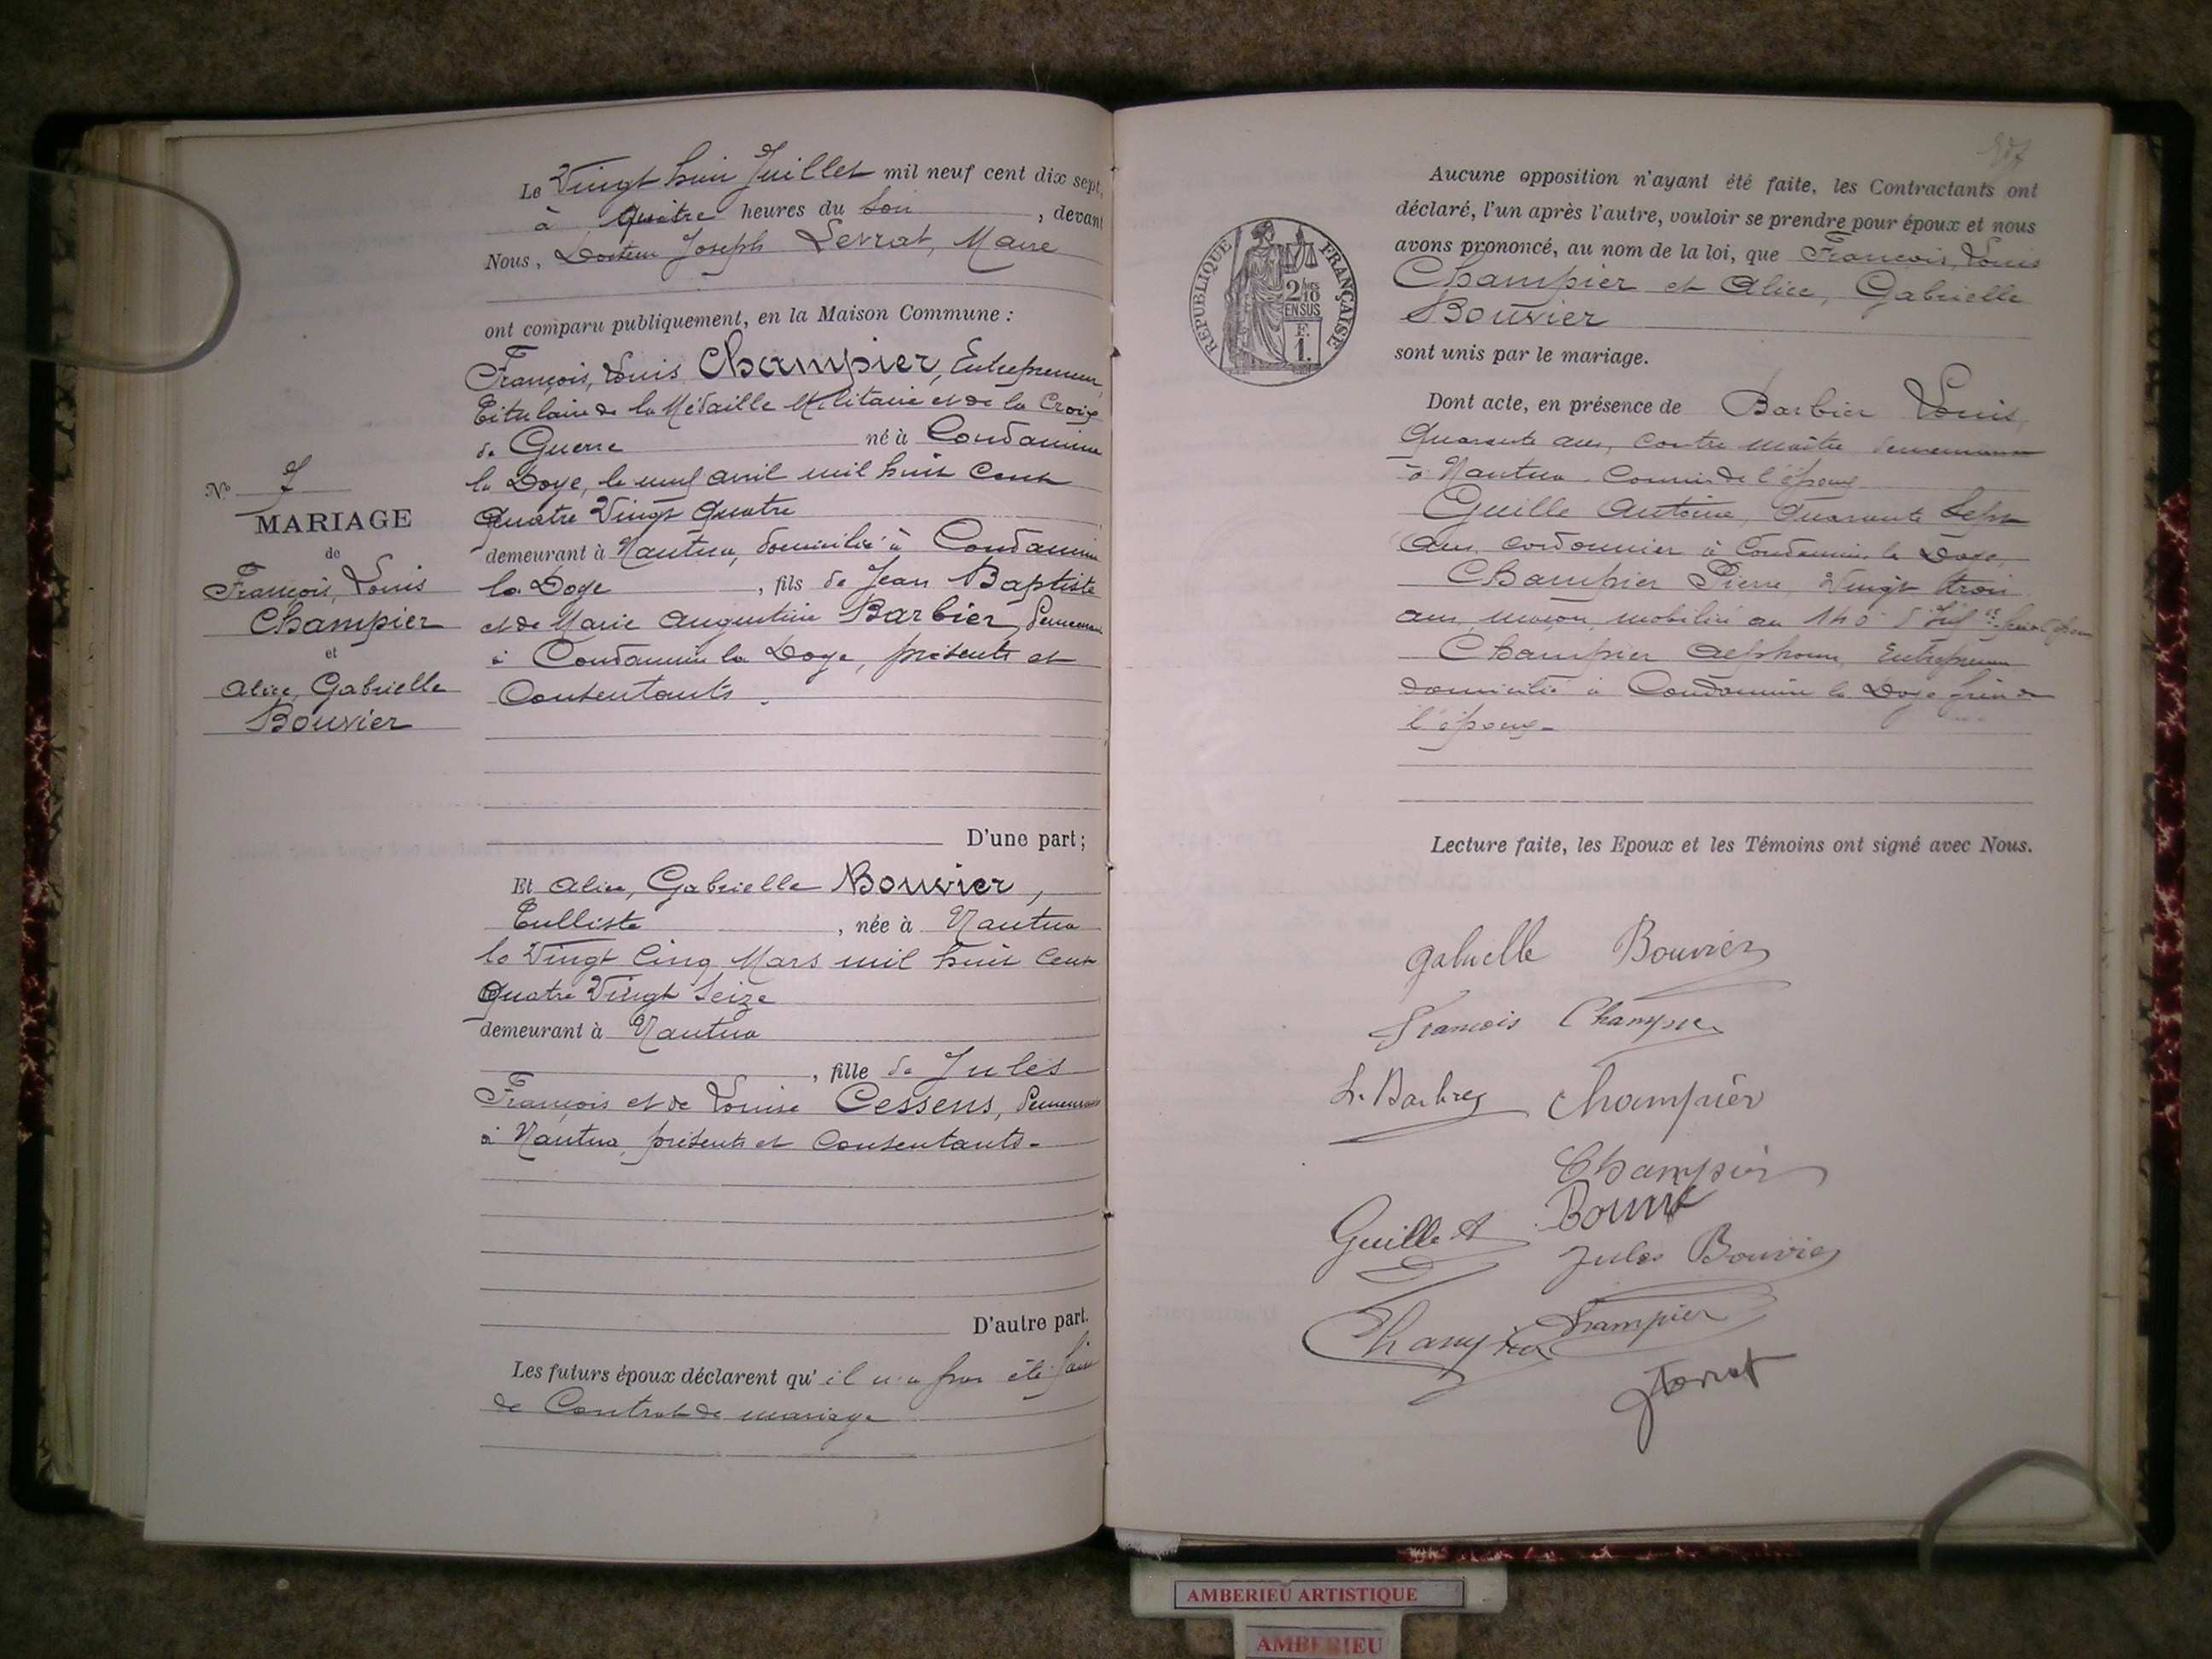 Le Vingt huit Juillet mil neuf cent dix sept,
à quatre heures du Soir, devant
Nous, Docteur Joseph Levrat, Maire
ont comparu publiquement, en la Maison Commune :
François, Louis Champier, Entrepreneur,
Titulaire de la Médaille Militaire et de la Croix
de Guerre né à Condamine
la Doye, le neuf avril mil huit cent
quatre Vingt quatre
demeurant à Nantua, domicilié à Condamine
la Doye, fils de Jean Baptiste
et de Marie Augustine Barbier, demeurant
à Condamine la Doye, présents et
Consentants.
D'une part;
Et Alice, Gabrielle Bouvier,
Tulliste, née à Nantua
le Vingt Cinq Mars mil huit Cent
quatre Vingt Seize
demeurant à Nantua
, fille de Jules
François et de Louise Cessens, demeurant
à Nantua, présents et Consentants.
D'autre part.
Les futurs époux déclarent qu'il n'a pas été fait
de Contrat de mariage
N° 7
MARIAGE
de
François, Louis
Champier
et
Alice, Gabrielle
Bouvier
Aucune opposition n'ayant été faite, les Contractants ont
déclaré, l'un après l'autre, vouloir se prendre pour époux et nous
avons prononcé, au nom de la loi, que François, Louis
Champier et Alice, Gabrielle
Bouvier
sont unis par le mariage.
Dont acte, en présence de Barbier Louis
Quarante ans, contre maître demeurant
à Nantua, Cousin de l'époux
Guille Antoine, Quarante Sept
ans, cordonnier à Condamine la Doye,
Champier Pierre, Vingt trois
ans, maçon, mobilisé au 140
Champier Alphonse, Entrepreneur
domicilié à Condamine la Doye frère de
l'époux.
Lecture faite, les Epoux et les Témoins ont signé avec Nous.
Gabrielle Bouvier
François Champier
L. Barbier Champier
Champier
Guille A Bouvier
Jules Bouvier
Champier Champier
J Levrat
RÉPUBLIQUE FRANÇAISE
2/10
EN SUS
F.
1.
AMBERIEU ARTISTIQUE
AMBERIEU